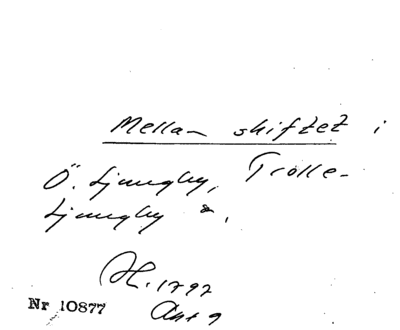 Mellan skiftet i
Ö. Ljungby, Trolle-
Ljungby s.
H. 1797
Ant 9
Nr 10877